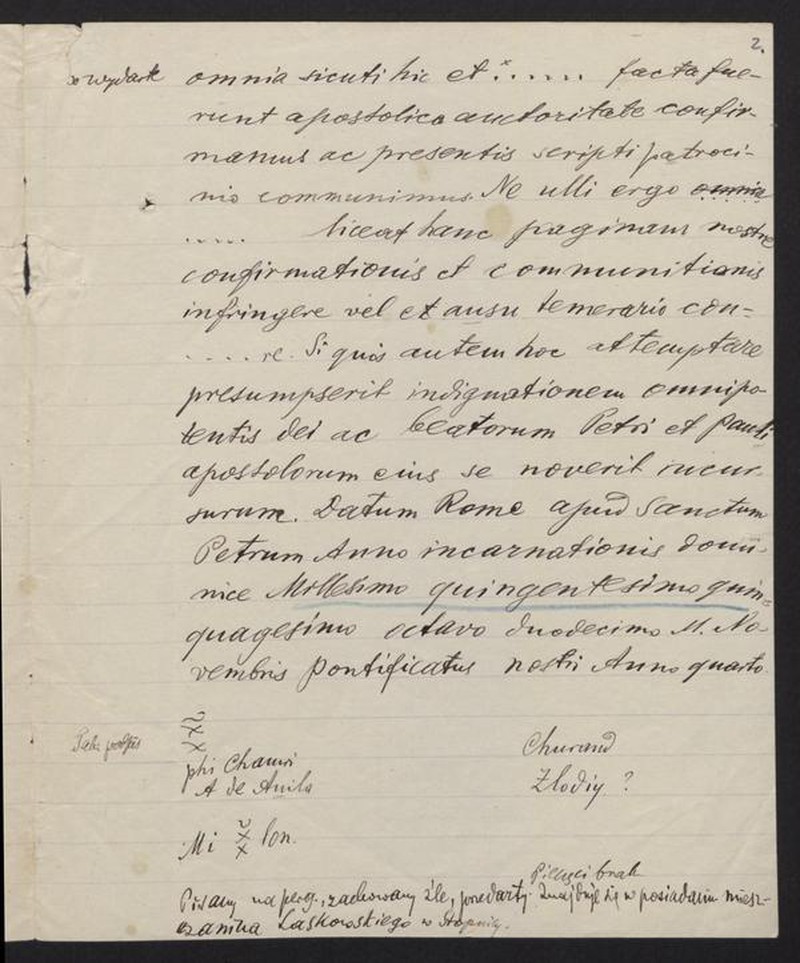 2.
x wydarte omnia sicuti hic et x...... facta fue-
runt apostolica auctoritate confir-
mamus ac presentis scripti patroci-
nio communimus. Ne ulli ergo omnia
..... liceat hanc paginam nostre
confirmationis et communitionis
infringere vel et ausu temerario con-
.....re. Si quis autem hoc attemptare
presumpserit indignationem omnipo-
tentis dei ac beatorum Petri et Pauli
apostolorum eius se noverit incur-
surum. Datum Rome apud Sanctum
Petrum Anno incarnationis domi-
nice Millesimo quingentesimo quin-
quagesimo octavo duodecimo M. No-
vembris pontificatus nostri Anno quarto.
Churand
phi Chauri
Zlodiy ?
A de Auila
Mi lon.
Pieczęci brak
Pisany na perg., zachowany źle, przedarty. Znajduje się w posiadaniu miesz-
czanina Laskowskiego w Stopnicy.